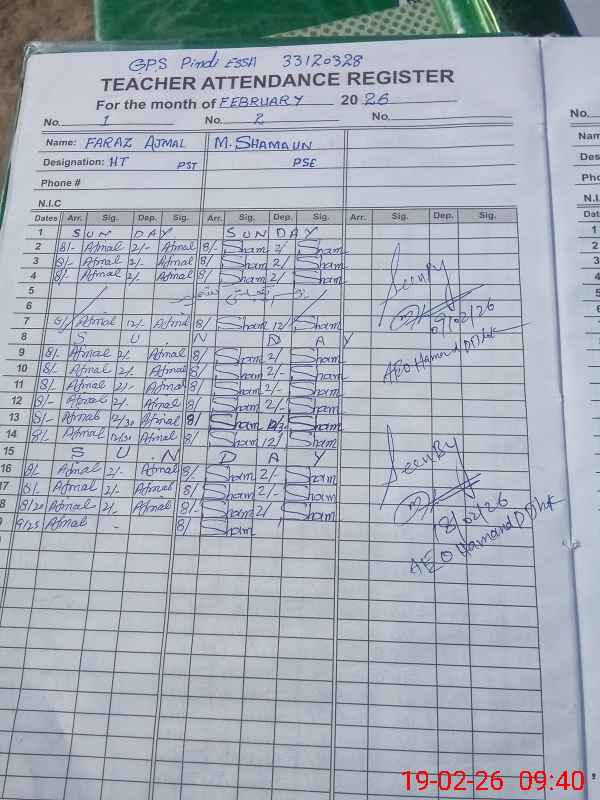 GPS Pindi ESSA 33120328
TEACHER ATTENDANCE REGISTER
For the month of FEBRUARY 20 26
No. 1 No. 2 No.
Name: FARAZ AJMAL M. SHAMAUN
Designation: HT PST PSE
Phone #
N.I.C
Dates Arr. Sig. Dep. Sig. Arr. Sig. Dep. Sig. Arr. Sig. Dep. Sig.
1 SUN DAY SUNDAY
2 8/- Ajmal 2/- Ajmal 8/ Sham 2/ Sham
3 8/- Ajmal 2/- Ajmal 8/ Sham 2/ Sham
4 8/- Ajmal 2/- Ajmal 8/ Sham 2/ Sham
5
6
7 8/ Ajmal 12/- Ajmal 8/ Sham 12/ Sham
8 S U N D A Y
9 8/- Ajmal 2/- Ajmal 8/ Sham 2/ Sham
10 8/- Ajmal 2/- Ajmal 8/ Sham 2/- Sham
11 8/- Ajmal 2/- Ajmal 8/ Sham 2/- Sham
12 8/- Ajmal 2/- Ajmal 8/ Sham 2/- Sham
13 8/- Ajmal 12/30 Ajmal 8/ Sham 12/30 Sham
14 8/- Ajmal 12/30 Ajmal 8/ Sham 12/ Sham
15 S U N D A Y
16 8/- Ajmal 2/- Ajmal 8/ Sham 2/- Sham
17 8/- Ajmal 2/- Ajmal 8/ Sham 2/- Sham
8 8/20 Ajmal 2/- Ajmal 8/- Sham 2/ Sham
9/25 Ajmal - 8/ Sham
Seen By
09/02/26
AEO Hamand
Seen By
18/02/26
AEO Hamand
No.
Nam
Des
Pho
N.I.
Dat
19-02-26 09:40